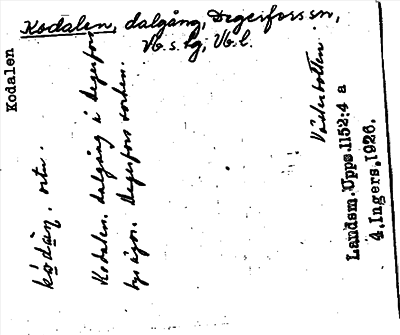 Kodalen, dalgång, Degerfors sn,
Vb. s. lg; Vb. l.
Kodalen
kodaɳ. ortn.
Kodalen. dalgång i Degerfors
byägor. Degerfors socken.
Västerbotten
Landsm. Upps. 1152:4 a
4. Ingers, 1926.